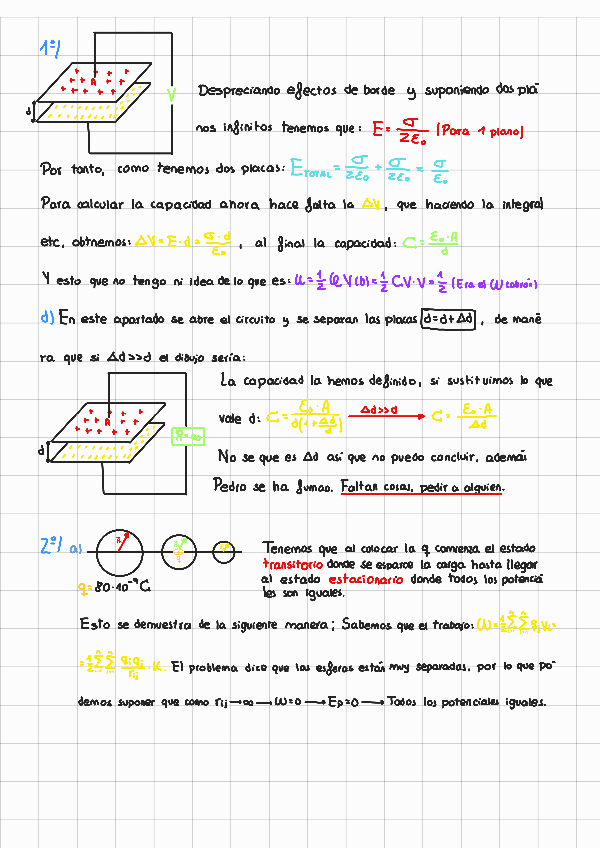 1º/
V
d
A
Despreciando efectos de borde y suponiendo dos pla
nos infinitos tenemos que: E = σ/2ε₀ (Para 1 plano)
Por tanto, como tenemos dos placas: E_TOTAL = σ/2ε₀ + σ/2ε₀ = σ/ε₀
Para calcular la capacidad ahora hace falta la ΔV, que haciendo la integral
etc, obtnemos: ΔV = E·d = σ·d/ε₀, al final la capacidad: C = ε₀·A/d
Y esto que no tengo ni idea de lo que es: U = 1/2 Q V(b) = 1/2 C·V·V = 1/2 (Era el W cabrón)
d) En este apartado se abre el circuito y se separan las placas d=d+Δd, de mane
ra que si Δd>>d el dibujo sería:
La capacidad la hemos definido, si sustituimos lo que
vale d: C = ε₀·A/d(1+Δd/d) Δd>>d → C = ε₀·A/Δd
R=∞
d
A
No se que es Δd así que no puedo concluir, además
Pedro se ha fumao. Faltan cosas, pedir a alguien.
2º/ a)
q= 80·10⁻⁹ C
Tenemos que al colocar la q comienza el estado
transitorio donde se esparce la carga hasta llegar
al estado estacionario donde todos los potencia
les son iguales.
Esto se demuestra de la siguiente manera; Sabemos que el trabajo: W = 1/2 Σ Σ qᵢ Vᵢ =
= 1/2 Σ Σ qᵢqⱼ/rᵢⱼ · K. El problema dice que las esferas están muy separadas, por lo que po-
demos suponer que como rij → ∞ → W=0 → Ep=0 → Todos los potenciales iguales.